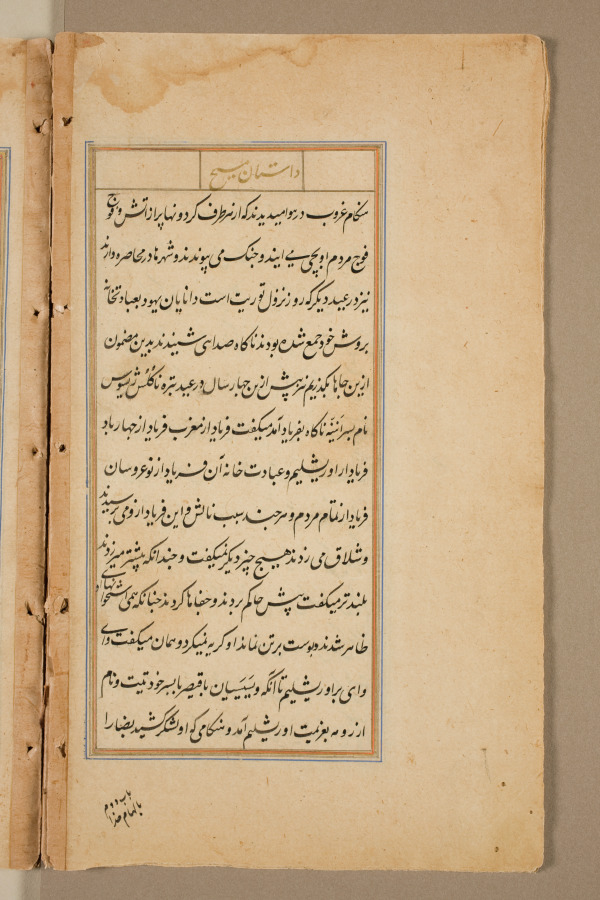 داستان مسیح
هنکام غروب در هوا میدیدند که از هر طرف کردونها پر از آتش و فوج
فوج مردم اوپچی می آیند و جنک می پیوندند و شهرها در محاصره دارند
نیز در عید دیکر که روز نزول توریت است دانایان یهود بعبادتخانه
بروش خود جمع شده بودند ناکاه صدای شنیدند بدین مضمون
ازین جاها بکذیریم نیز پیش ازین چهار سال در عید
نام پسر ناکاه بفریاد آمد میکفت فریاد از مغرب فریاد از چهار باد
فریاد از اورشلیم و عبادت خانه آن فریاد از نوعروسان
فریاد از تمام مردم و هر چند سبب نالش و این فریاد ازو می پرسیدند
و شلاق می زدند هیچ چیز دیکر نمیکفت و چندانکه بیشتر میزدند
بلندتر میکفت پیش حاکم بردند و جفاها کردند چنانکه همی استخوانهای او
ظاهر شدند و پوست بر تن نماند او کریه نمیکرد و همان میکفت وای
وای بر اورشلیم تا آنکه ویسپسیان با قیصر با پسر خود تیت و نام
از روم بعزیمت اورشلیم آمد و هنکامی که او لشکر کشید
باب دوم
بالهام خدا